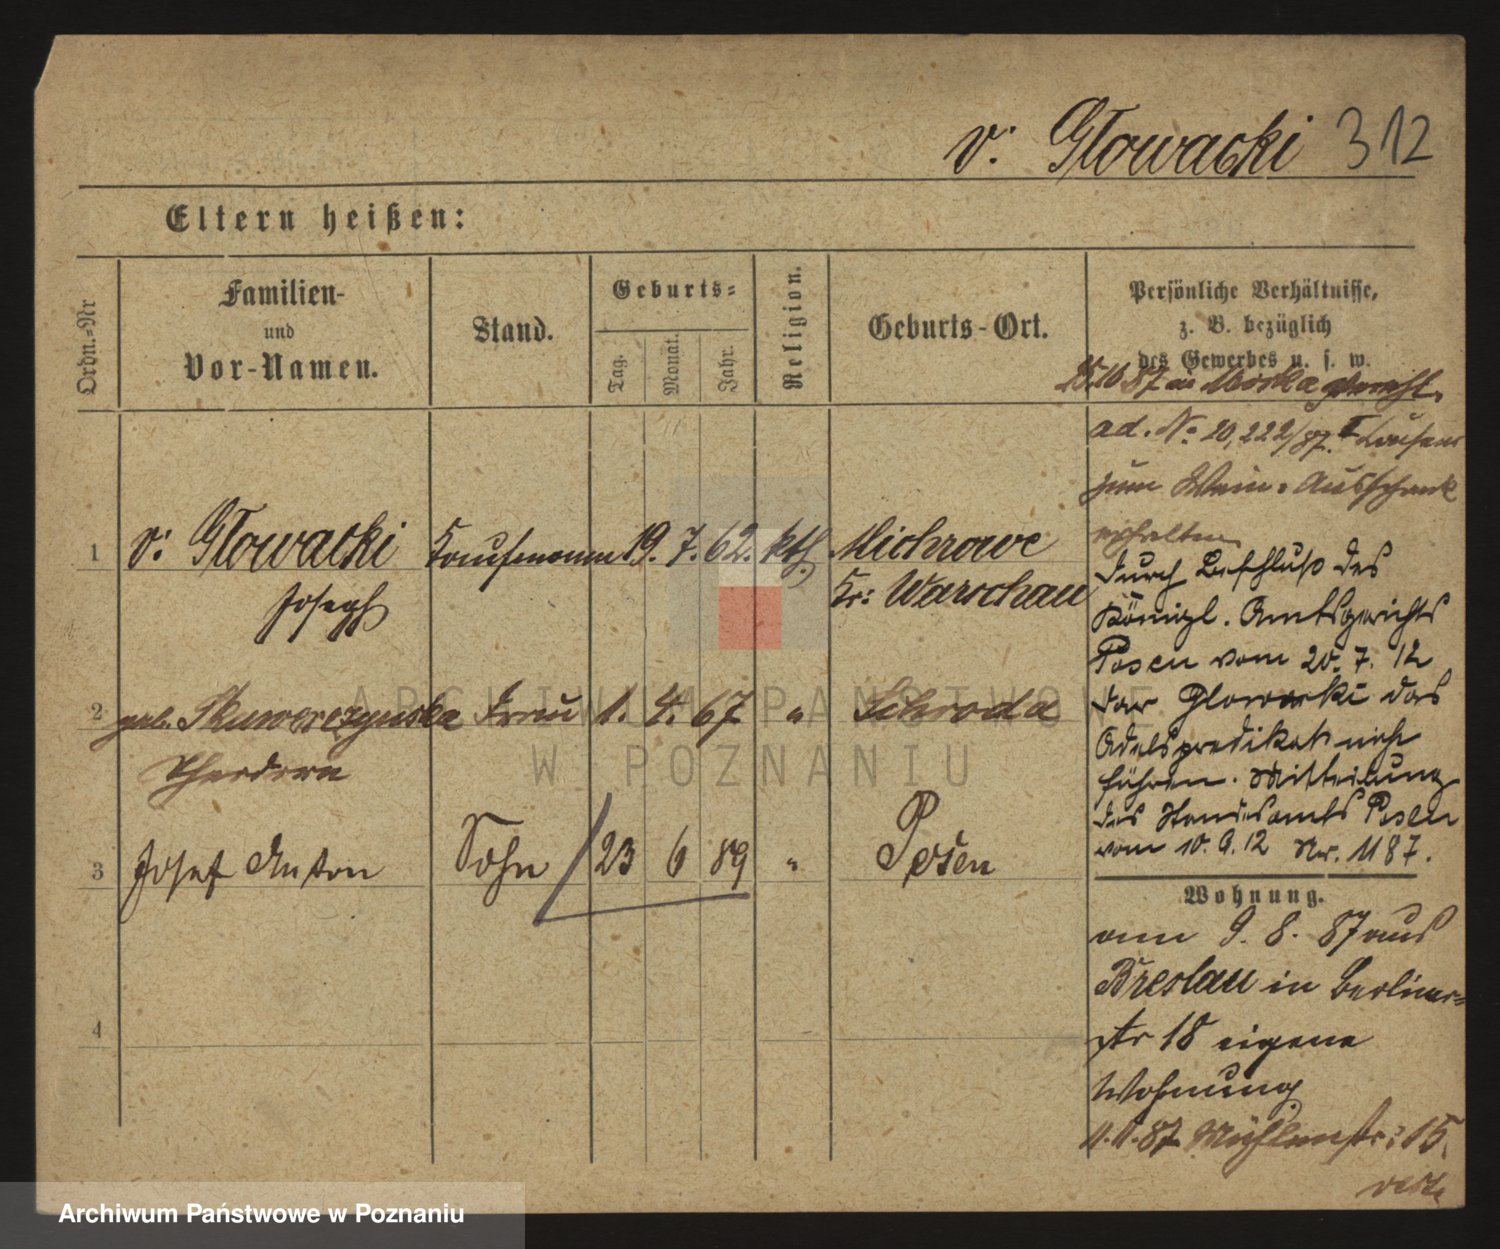 v: Głowacki 312
Eltern heißen:
Ordn.-Nr
Familien-
und
Vor-Namen.
Stand.
Geburts-
Tag.
Monat.
Jahr.
Religion.
Geburts-Ort.
Persönliche Verhältnisse,
z. B. bezüglich
des Gewerbes u. s. w.
25.10 87 in
ad. No 20,222/87. I
zum Wein-Ausschank
erhalten
1 v: Głowacki Kaufmann 19. 7. 62. kth. Michrowe
Joseph Kr: Warschau
2 geb. Skuwerczynska Frau 1. 4. 67 " Schroda
Theodora
3 Josef Anton Sohn 23 6 89 " Posen
4
Durch Beschluß des
Königl. Amtsgerichts
Posen vom 20. 7. 12
darf Glowacki das
Adelspredikat nicht
führen. Mitteilung
des Standesamts Posen
vom 10. 9. 12 Nr. 1187.
Wohnung.
am 9. 8. 87 aus
Breslau in Berliner-
str 18 eigene
Wohnung
11.11.87 Mühlenstr: 15.
ARCHIWUM PAŃSTWOWE
W POZNANIU
Archiwum Państwowe w Poznaniu